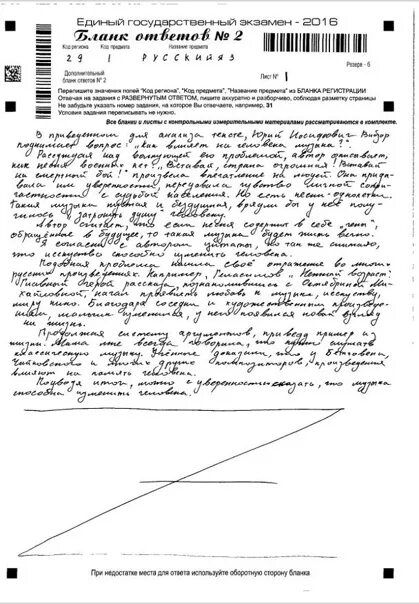 Единый государственный экзамен - 2016
Бланк ответов № 2
Код региона Код предмета Название предмета
29 1 РУССКИЙЯЗ
Резерв - 6
Дополнительный
бланк ответов № 2
Лист № 1
Перепишите значения полей "Код региона", "Код предмета", "Название предмета" из БЛАНКА РЕГИСТРАЦИИ
Отвечая на задания с РАЗВЕРНУТЫМ ОТВЕТОМ, пишите аккуратно и разборчиво, соблюдая разметку страницы
Не забудьте указать номер задания, на которое Вы отвечаете, например, 31
Условия задания переписывать не нужно.
Все бланки и листы с контрольными измерительными материалами рассматриваются в комплекте.
В приведённом для анализа тексте, Юрий Иосифович Визбор
поднимает вопрос: "как влияет на человека музыка?"
Рассуждая над волнующей его проблемой, автор описывает,
как песня военных лет: "Вставай, страна огромная! Вставай
на смертный бой!" произвела впечатление на людей. Она прида-
вала им уверенности, передавала чувство личной сопри-
частности с судьбой населения. Но есть песни-однолетки.
Такая музыка пустая и бездушная, вряд ли бы у неё полу-
чилось затронуть душу человеку.
Автор считает, что если песня содержит в себе "ген",
обращённые в будущее, то такая музыка будет жить вечно.
Я согласен с автором цитаты, что так же считаю,
что искусство способно изменить человека.
Подобная проблема нашла своё отражение во многих
русских произведениях. Например, Герасимов "Нежный возраст".
Главный герой рассказа, познакомившись с Октябриной Ми-
хайловной, начал проявлять любовь к музыке, искусству,
миру кино. Благодаря соседки и художественным произве-
ниям мальчик изменился, у него появился новый взгляд
на жизнь.
Продолжая систему аргументов, приведу пример из
жизни. Мама мне всегда говорила, что нужно слушать
классическую музыку. Учёные доказали, что у Бетховена,
Чайковского и многих других композиторов, произведения
влияют на память человека.
Подводя итог, можно с уверенностью сказать, что музыка
способна изменить человека.
При недостатке места для ответа используйте оборотную сторону бланка